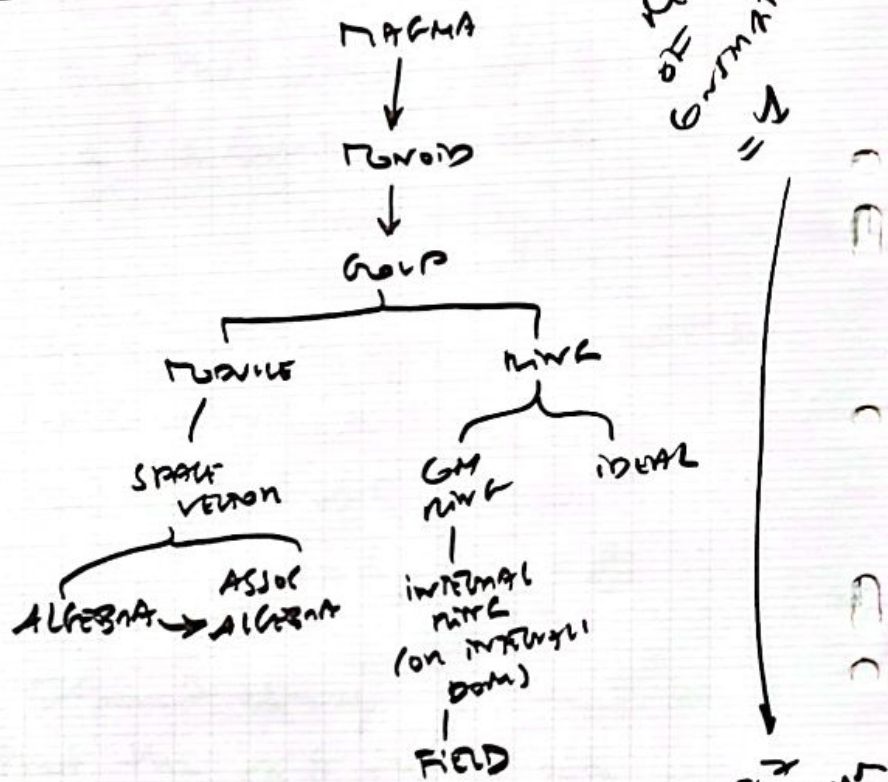 MAGMA
MONOID
GROUP
MODULE
RING
SPACE
VECTOR
COM
RING
IDEAL
ALGEBRA
ASSOC
ALGEBRA
INTEGRAL
RING
(OR INTEGRAL
DOM)
FIELD
OF
= 1